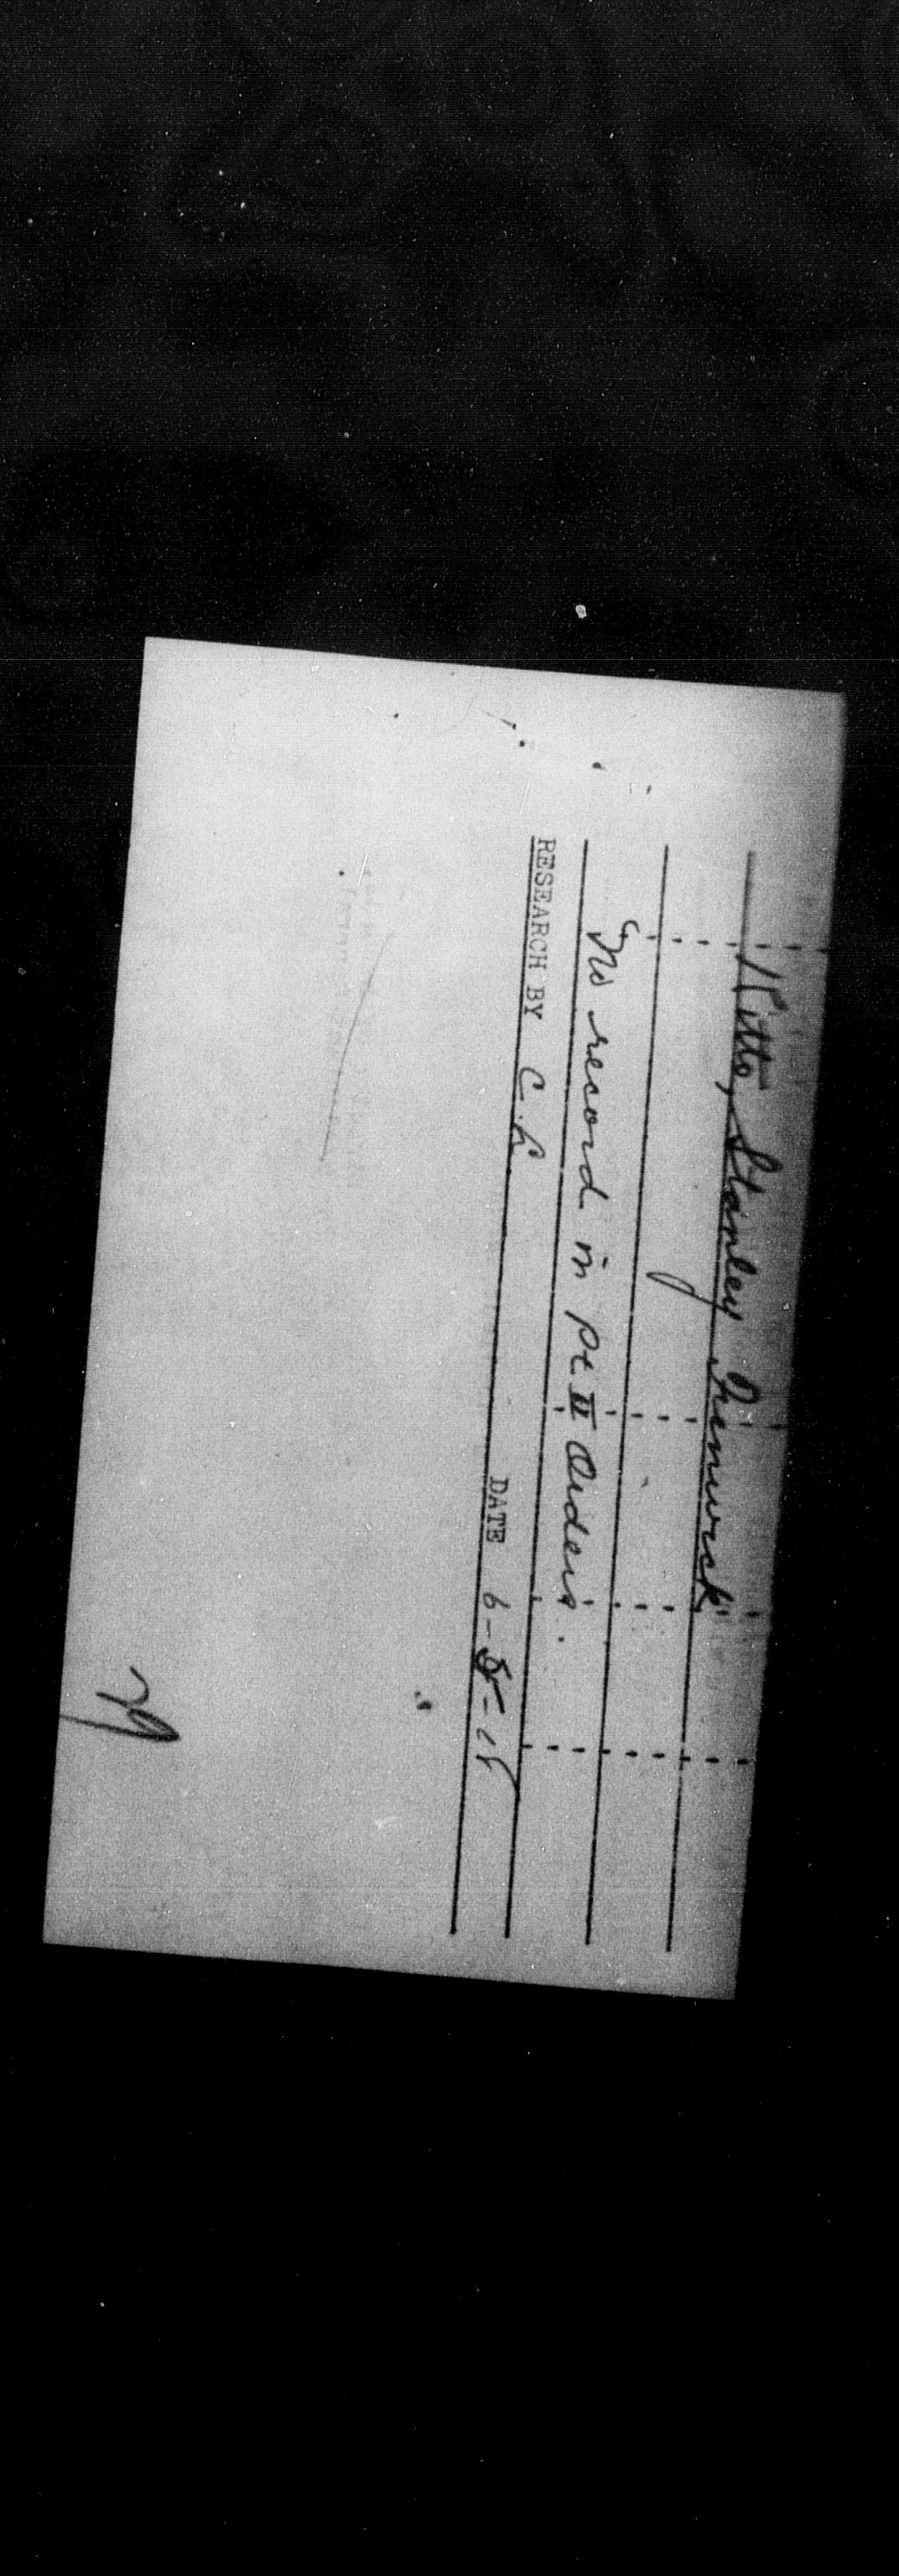 Kitto, Stanley Renwick
No record in pt II Orders.
RESEARCH BY C.L DATE 6-8-18